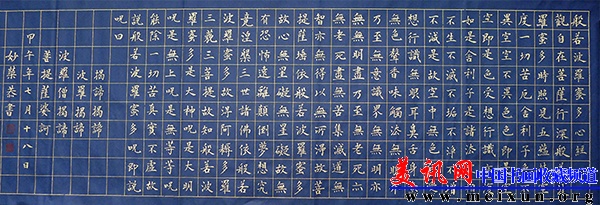 般若波羅蜜多心經
觀自在菩薩行深般若波
羅蜜多時照見五蘊皆空
度一切苦厄舍利子色不
異空空不異色色即是空
空即是色受想行識亦復
如是舍利子是諸法空相
不生不滅不垢不淨不增
不減是故空中無色無受
想行識無眼耳鼻舌身意
無色聲香味觸法無眼界
乃至無意識界無無明亦
無無明盡乃至無老死亦
無老死盡無苦集滅道無
智亦無得以無所得故菩
提薩埵依般若波羅蜜多
故心無罣礙無罣礙故無
有恐怖遠離顛倒夢想究
竟涅槃三世諸佛依般若
波羅蜜多故得阿耨多羅
三藐三菩提故知般若波
羅蜜多是大神呪是大明
呪是無上呪是無等等呪
能除一切苦真實不虛故
說般若波羅蜜多呪即說
呪曰
揭諦揭諦
波羅揭諦
波羅僧揭諦
菩提薩婆訶
甲午年七月十八日
妙樂英書
美讯网 中国书画收藏频道
www.meixun.org